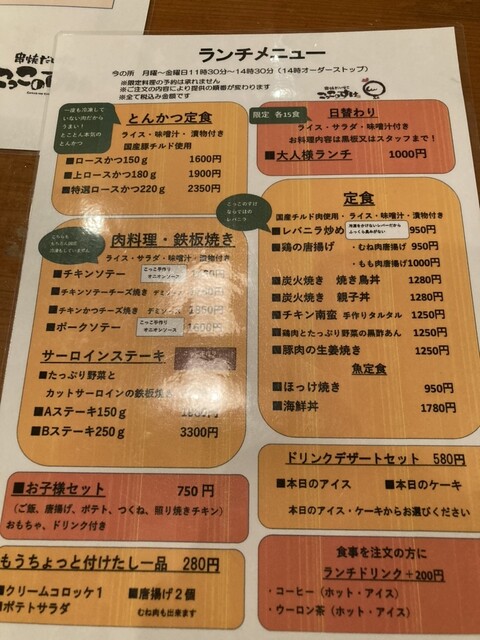 串焼だ
こっこのす
ランチメニュー
串焼だいなく
こっこのすけ
今の所 月曜~金曜日11時30分~14時30分(14時オーダーストップ)
※限定料理の予約は承れません
※ご注文の内容により提供の順番が変わります
※全て税込み金額です
一度も冷凍して
いない肉だから
うまい!
とことん本気の
とんかつ
とんかつ定食
ライス・味噌汁・漬物付き
国産豚チルド使用
■ロースかつ150g 1600円
■上ロースかつ180g 1900円
■特選ロースかつ220g 2350円
こちらも
もちろん国産
冷凍をしていません
肉料理・鉄板焼き
ライス・サラダ・味噌汁・漬物付き
■チキンソテー
こっこ手作り
オニオンソース
■チキンソテーチーズ焼き デミソ
■チキンかつチーズ焼き デミソース
■ポークソテー
こっこ手作り
オニオンソース
サーロインステーキ
■たっぷり野菜と
カットサーロインの鉄板焼き
■Aステーキ150g
■Bステーキ250g 3300円
■お子様セット 750円
(ご飯、唐揚げ、ポテト、つくね、照り焼きチキン)
おもちゃ、ドリンク付き
もうちょっと付けたし一品 280円
■クリームコロッケ1 ■唐揚げ2個
ポテトサラダ むね肉も出来ます
限定 各15食
日替わり
ライス・サラダ・味噌汁付き
お料理内容は黒板又はスタッフまで!
■大人様ランチ 1000円
こっこのすけ
ならではの
レバニラ
定食
国産チルド肉使用・ライス・味噌汁・漬物付き
■レバニラ炒め 950円
冷凍をかけないレバーだから
ふっくら臭みがない
■鶏の唐揚げ ・むね肉唐揚げ 950円
・もも肉唐揚げ 1000円
■炭火焼き 焼き鳥丼 1280円
■炭火焼き 親子丼 1280円
■チキン南蛮 手作りタルタル 1250円
■鶏肉とたっぷり野菜の黒酢あん 1250円
■豚肉の生姜焼き 1250円
魚定食
■ほっけ焼き 950円
■海鮮丼 1780円
ドリンクデザートセット 580円
■本日のアイス ■本日のケーキ
本日のアイス・ケーキからお選びください
食事を注文の方に
ランチドリンク+200円
・コーヒー(ホット・アイス)
・ウーロン茶(ホット・アイス)